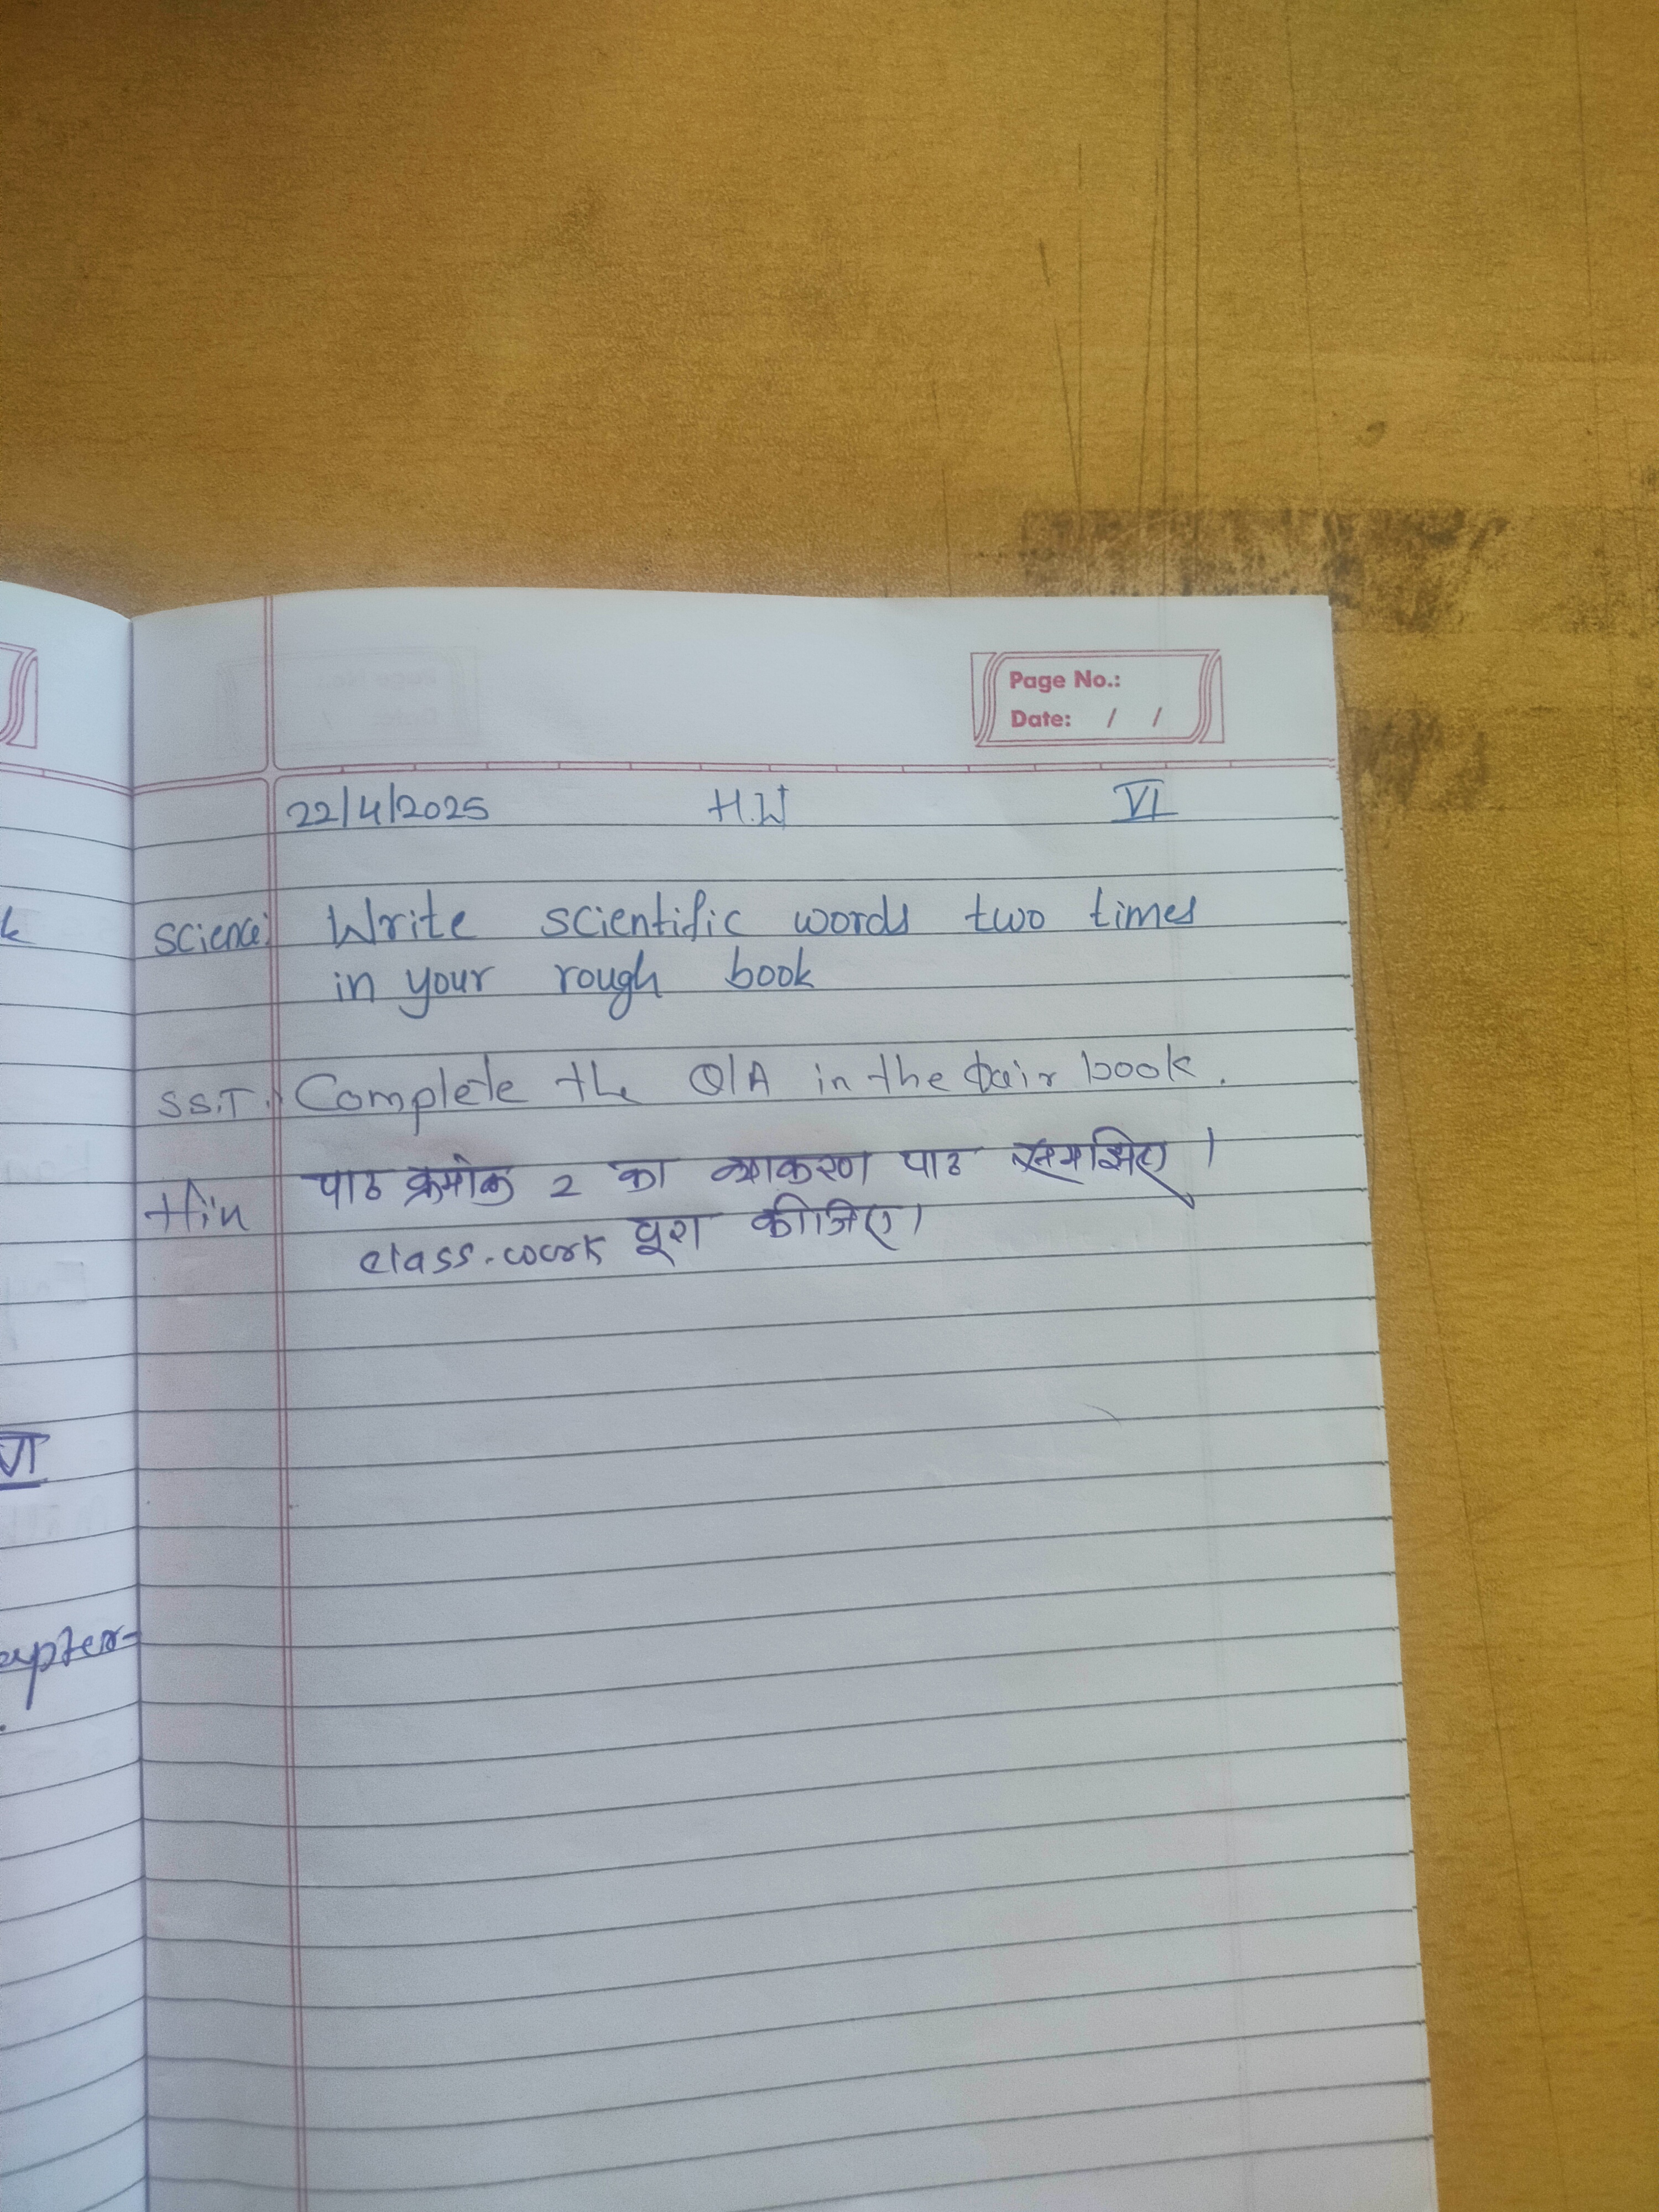 Page No.:
Date: / /
22/4/2025 H.W VI
Science: Write scientific words two times
in your rough book
S.S.T. Complete the Q/A in the fair book.
Hin पाठ क्रमांक 2 का व्याकरण पाठ समझिए।
class-work पूरा कीजिए।
VI